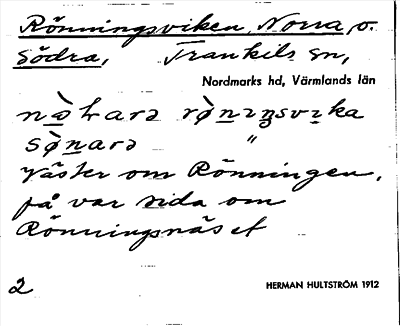 Rönningsviken, Norra o.
Södra, Trankils sn,
Nordmarks hd, Värmlands län
"
Väster om Rönningen,
på var sida om
Rönningsnäset
2 HERMAN HULTSTRÖM 1912